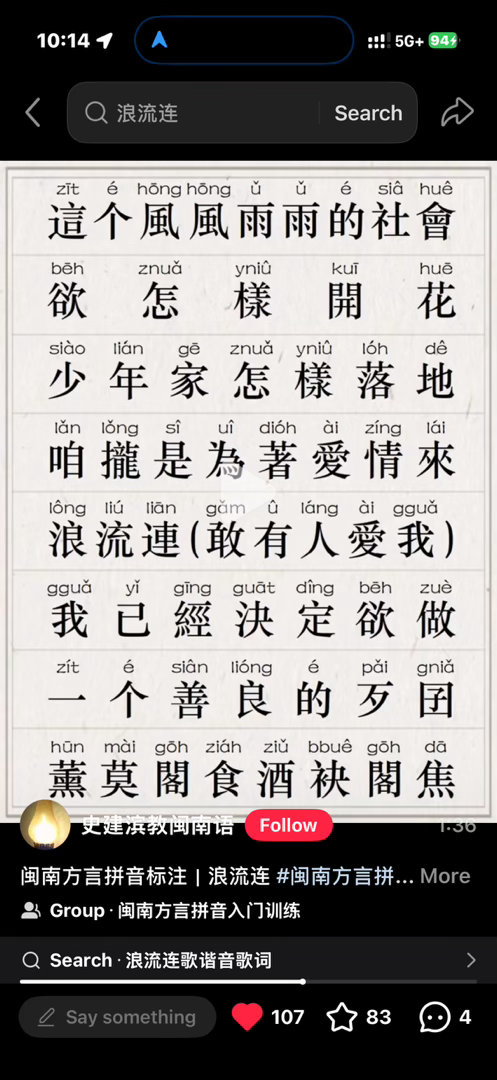 10:14
5G+ 94
浪流连 Search
zīt é hōng hōng ǔ ǔ é siâ huê
這个風風雨雨的社會
bēh znuǎ yniû kuī huē
欲怎樣開花
siào lián gē znuǎ yniû lóh dê
少年家怎樣落地
lǎn lǒng sî uî dióh ài zíng lái
咱攏是為著愛情來
lông liú liān gǎm û láng ài gguǎ
浪流連(敢有人愛我)
gguǎ yǐ gīng guāt dîng bēh zuè
我已經決定欲做
zít é siân lióng é pǎi gniǎ
一个善良的歹囝
hūn mài gōh ziáh ziǔ bbuê gōh dā
薰莫閣食酒袂閣焦
史建滨教闽南语 Follow 1:36
闽南方言拼音标注 | 浪流连 #闽南方言拼... More
Group · 闽南方言拼音入门训练
Search · 浪流连歌谐音歌词
Say something 107 83 4